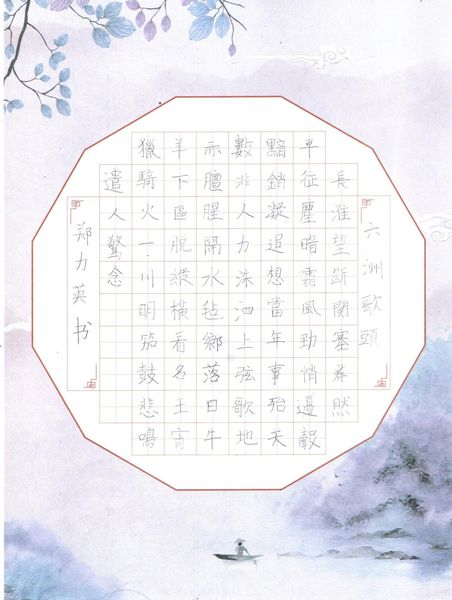 六洲歌頭
長淮望斷關塞莽然
平征塵暗霜風勁悄邊聲
黯銷凝追想當年事殆天
數非人力洙泗上弦歌地
亦膻腥隔水氈鄉落日牛
羊下區脫縱橫看名王宵
獵騎火一川明笳鼓悲鳴
遣人驚念
郑力英书